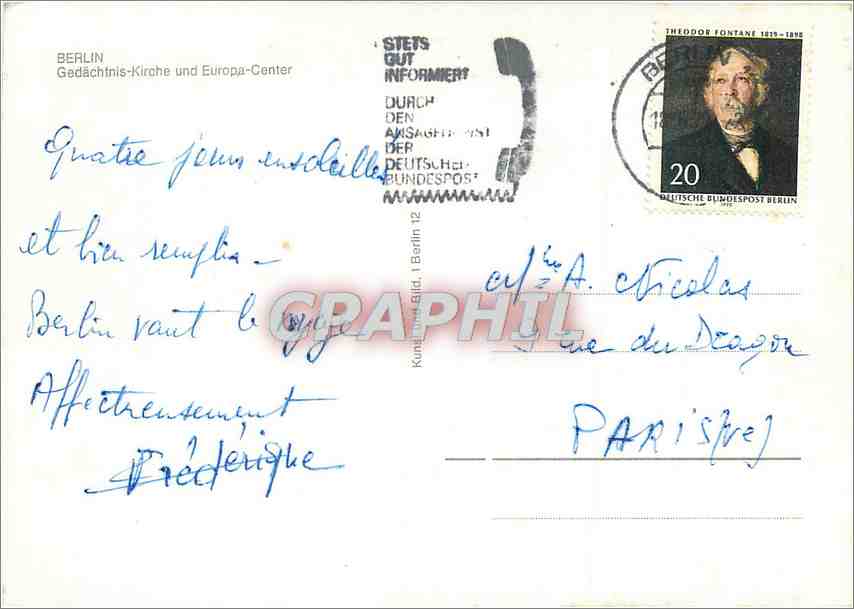 BERLIN
Gedächtnis-Kirche und Europa-Center
STETS
GUT
INFORMIERT
DURCH
DEN
ANSAGEDIENST
DER
DEUTSCHEN
BUNDESPOST
BERLIN
THEODOR FONTANE 1819-1898
20
DEUTSCHE BUNDESPOST BERLIN
1970
Quatre jours ensoleillés
et bien remplis –
Berlin vaut le voyage
Affectueusement
Frédérique
Kunst und Bild, 1 Berlin 12
CARAPHIL
Mme A. Nicolas
9 rue du Dragon
PARIS (VIe)